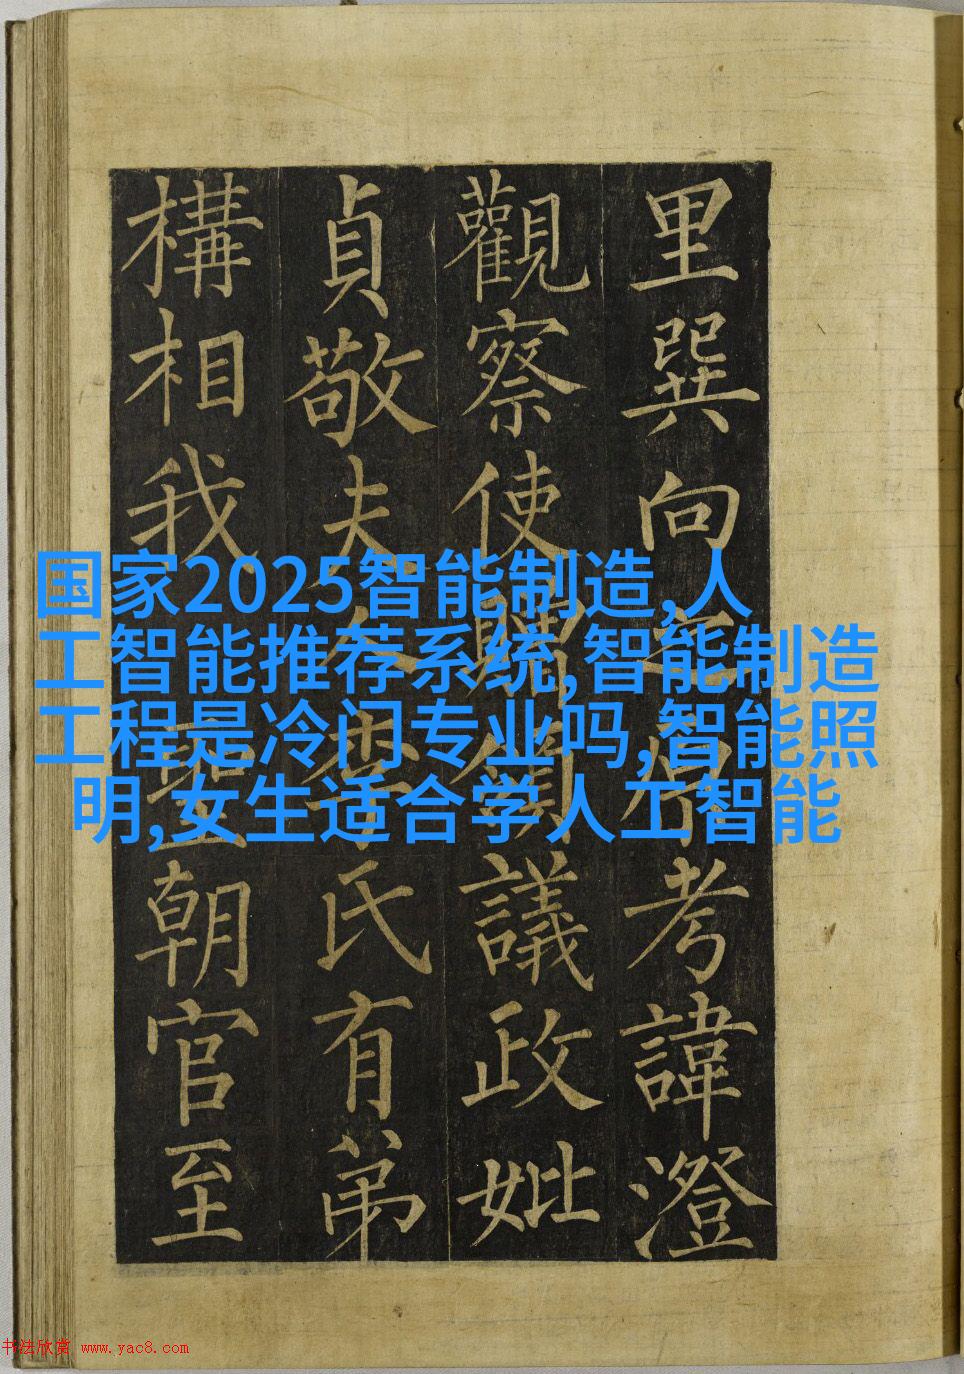 里巽向之原考諱澄
觀察使贈領議政妣
貞敬夫人李氏有弟
構相我聖朝官至
国家2025智能制造,人
工智能推荐系统,智能制造
工程是冷门专业吗,智能照
明,女生适合学人工智能
书法欣赏 www.yac8.com